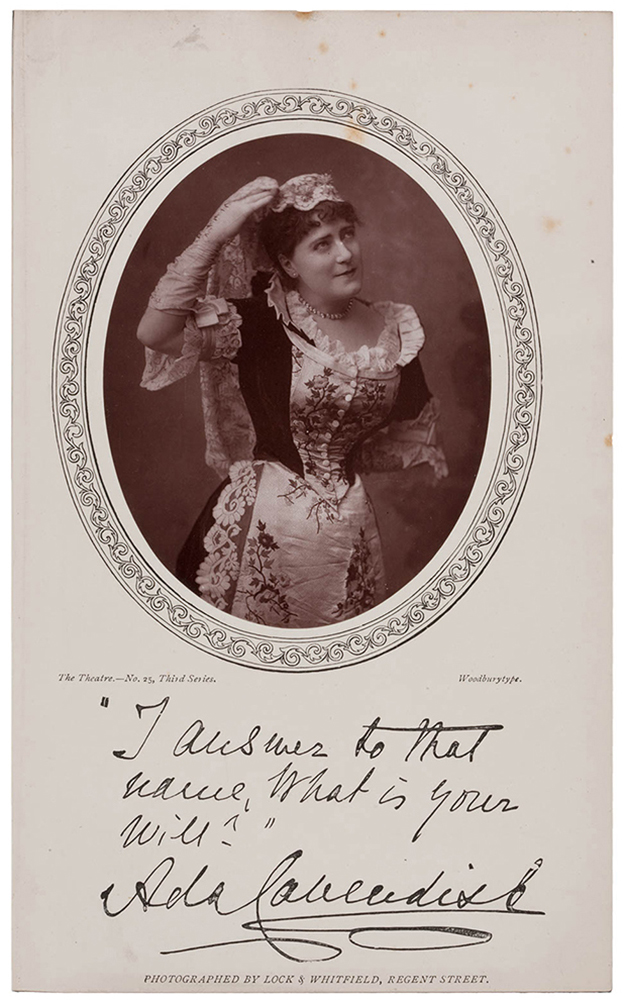 The Theatre.—No. 25, Third Series.
Woodburytype.
"I answer to that
name, What is your
will?"
Ada Cavendish
PHOTOGRAPHED BY LOCK & WHITFIELD, REGENT STREET.